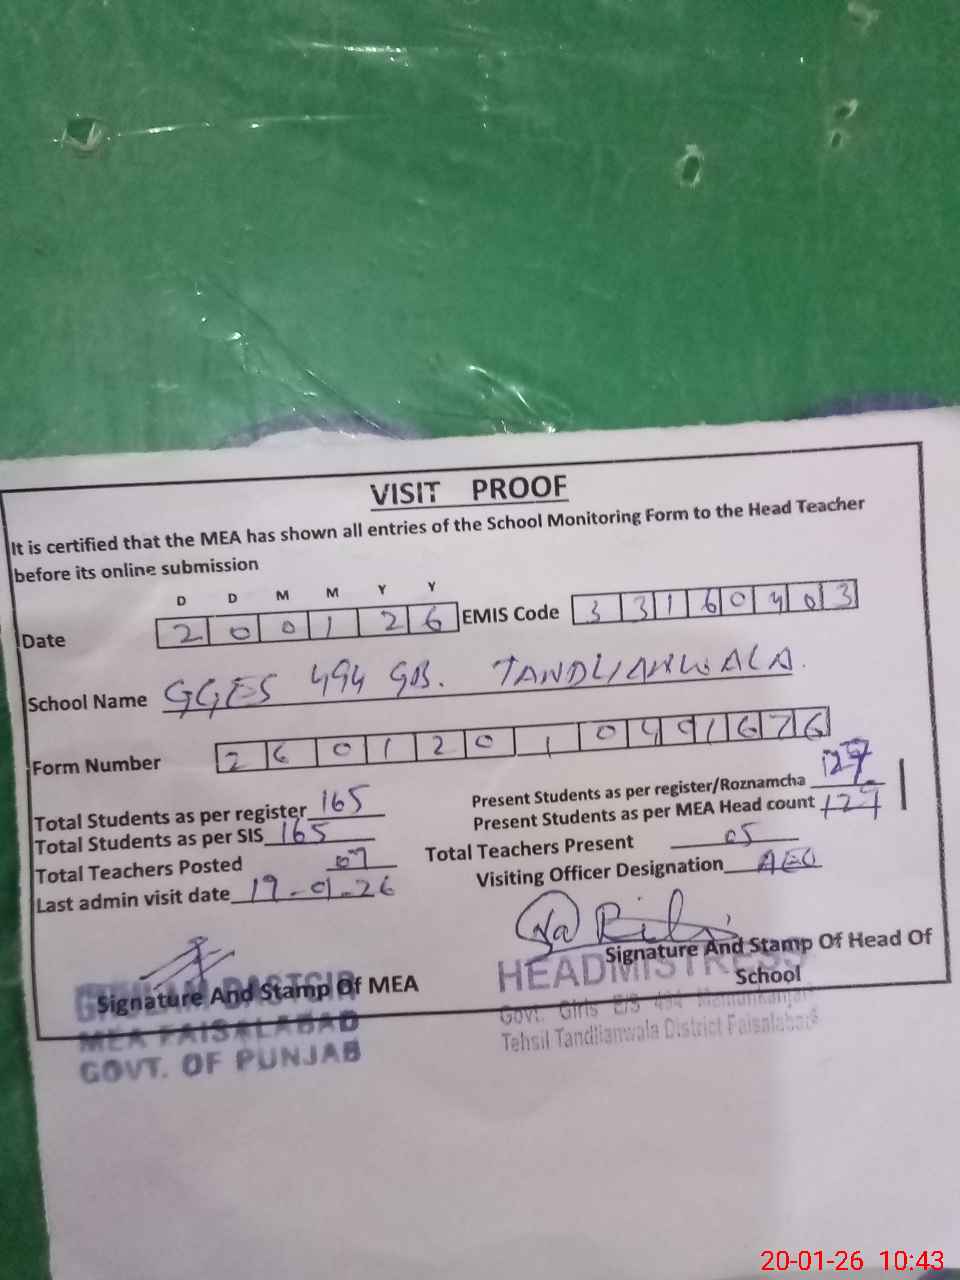 VISIT PROOF
It is certified that the MEA has shown all entries of the School Monitoring Form to the Head Teacher
before its online submission
D D M M Y Y
Date 2 0 0 1 2 6 EMIS Code 3 3 1 6 0 4 0 3
School Name GGES 494 GB. TANDLIANWALA.
Form Number 2 6 0 1 2 0 1 0 4 9 1 6 7 6
Total Students as per register 165 Present Students as per register/Roznamcha
Total Students as per SIS 165 Present Students as per MEA Head count
Total Teachers Posted 07 Total Teachers Present 05
Last admin visit date 19-01-26 Visiting Officer Designation AEO
Signature And Stamp Of MEA Signature And Stamp Of Head Of
School
DASTGIR
MEA FAISALABAD
GOVT. OF PUNJAB
HEADMISTRESS
Govt. Girls E/S 494
Tehsil Tandlianwala District Faisalabad
20-01-26 10:43